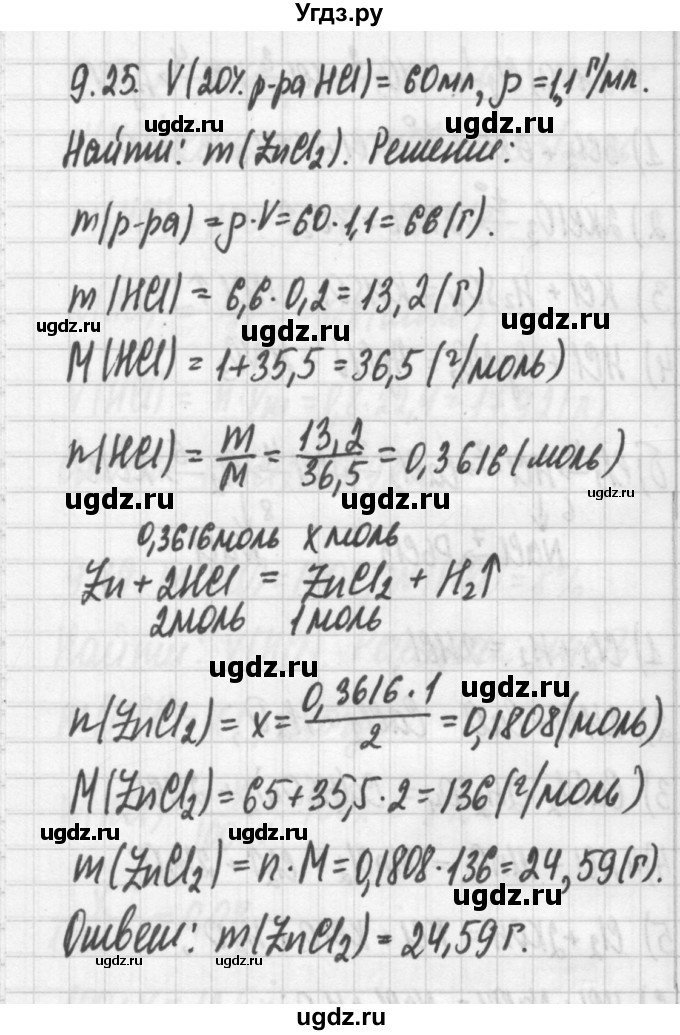 Угдз.ру
9.25. V(20% р-ра HCl) = 60мл, ρ = 1,1 г/мл.
ugdz.ru ugdz.ru
Найти: m(ZnCl₂). Решение:
m(р-ра) = ρ·V = 60·1,1 = 66(г).
m(HCl) = 6,6·0,2 = 13,2(г)
ugdz.ru ugdz.ru ugdz.ru
M(HCl) = 1+35,5 = 36,5(г/моль)
n(HCl) = m/M = 13,2/36,5 = 0,3616(моль)
ugdz.ru ugdz.ru ugdz.ru
0,3616моль x моль
Zn + 2HCl = ZnCl₂ + H₂↑
2моль 1моль
ugdz.ru ugdz.ru
n(ZnCl₂) = x = 0,3616·1/2 = 0,1808(моль)
M(ZnCl₂) = 65+35,5·2 = 136(г/моль)
ugdz.ru ugdz.ru
m(ZnCl₂) = n·M = 0,1808·136 = 24,59(г).
Ответ: m(ZnCl₂) = 24,59г.
ugdz.ru ugdz.ru
ugdz.ru